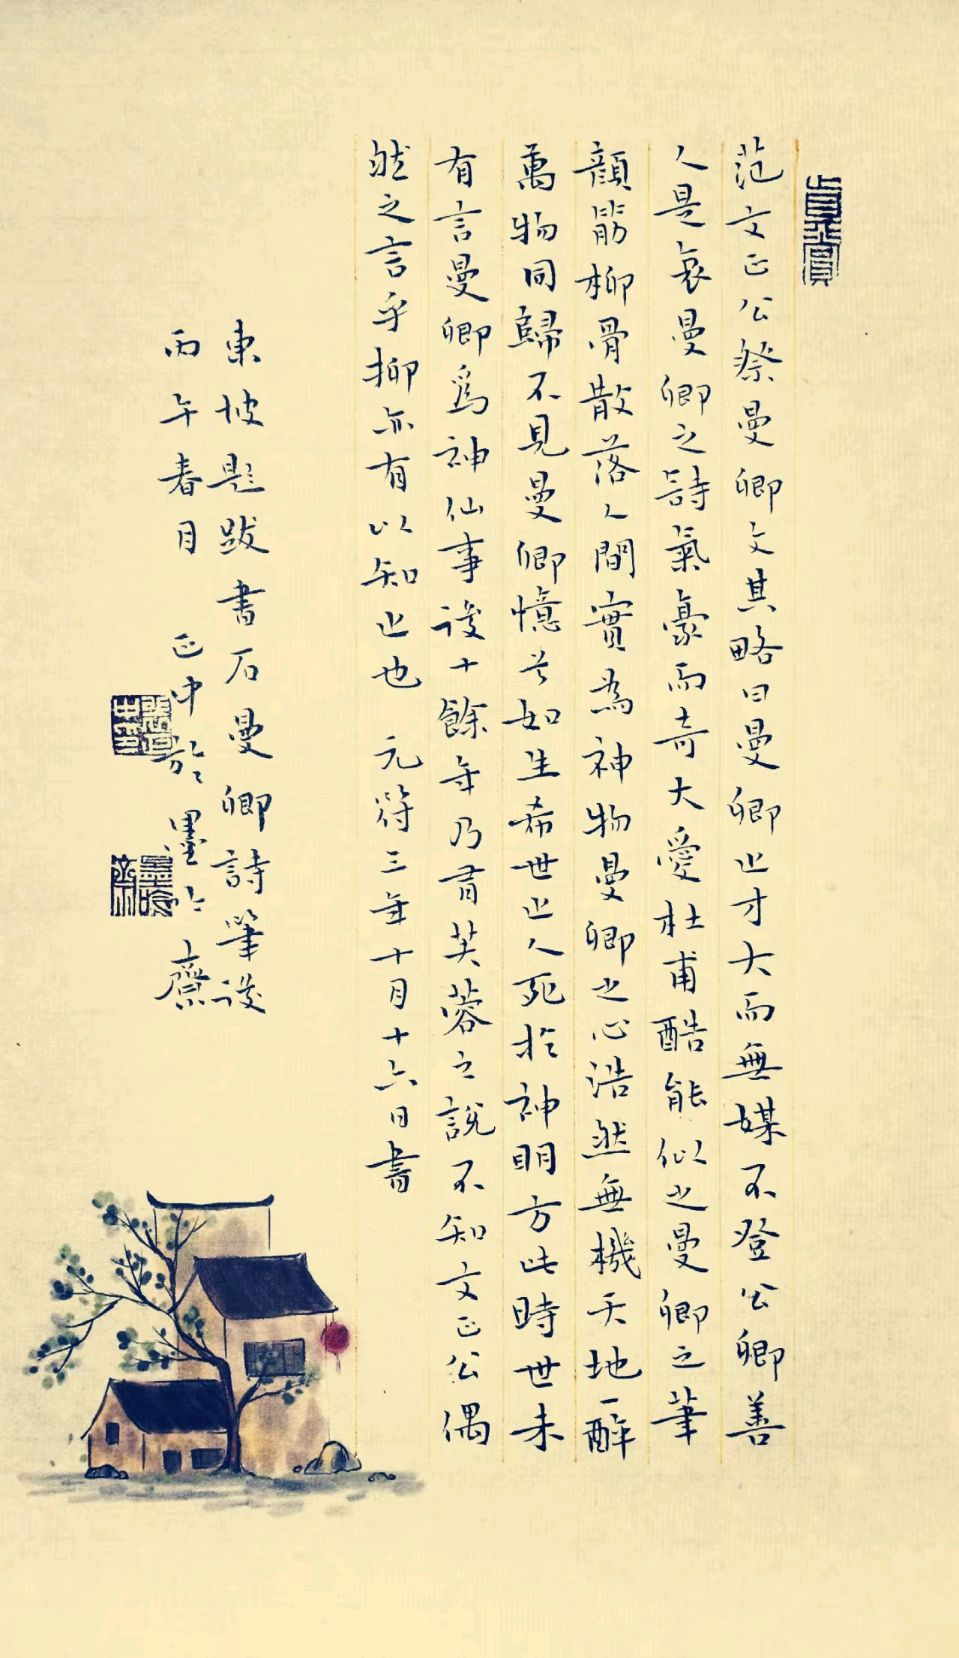 范文正公祭曼卿文其略曰曼卿之才大而無媒不登公卿善
人是哀曼卿之詩氣豪而奇大愛杜甫酷能似之曼卿之筆
顔筋柳骨散落人間實為神物曼卿之心浩然無機天地一醉
萬物同歸不見曼卿憶兮如生希世之人死於神明方此時世未
有言曼卿爲神仙事後十餘年乃有芙蓉之說不知文正公偶
然之言乎抑亦有以知之也 元符三年十月十六日書
東坡題跋書石曼卿詩筆後
丙午春月 正中於墨吟齋
墨吟齋